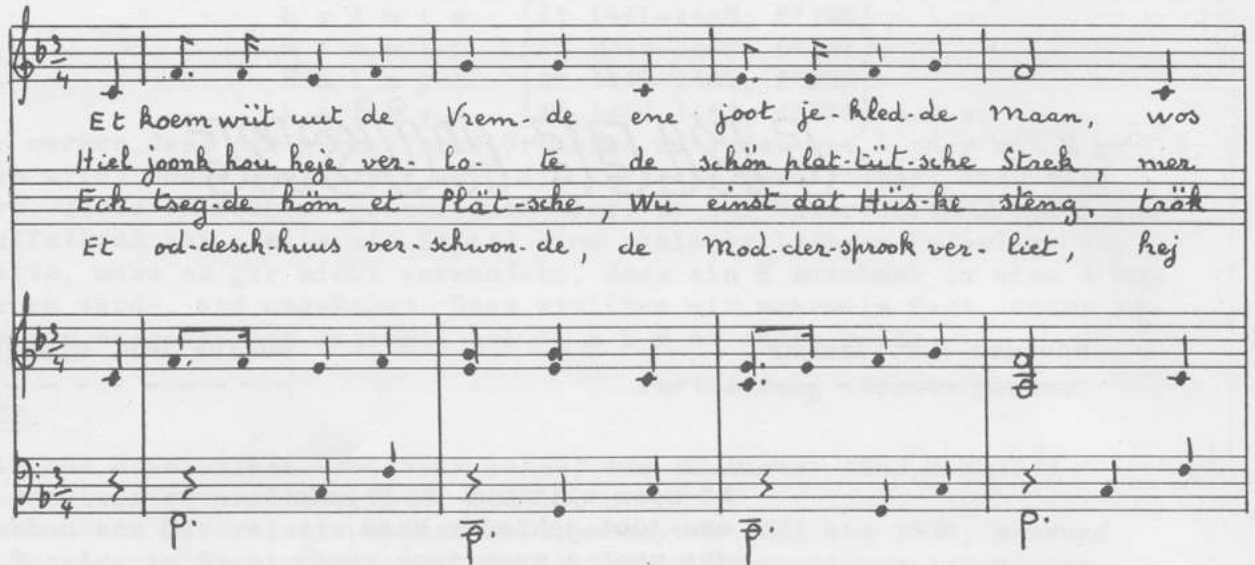 3
4
Et koem wiit uut de Vrem-de ene joot je-kled-de Maan, wos
Hiel joonk hou heje ver-lo-te de schön plat-tüt-sche Strek, mer
Eck tseg-de höm et Plät-sche, Wu einst dat Hüs-ke steng, taök
Et od-desch-huus ver-schwon-de, de Mod-der-sprook ver-liet, hej
3
4
3
4